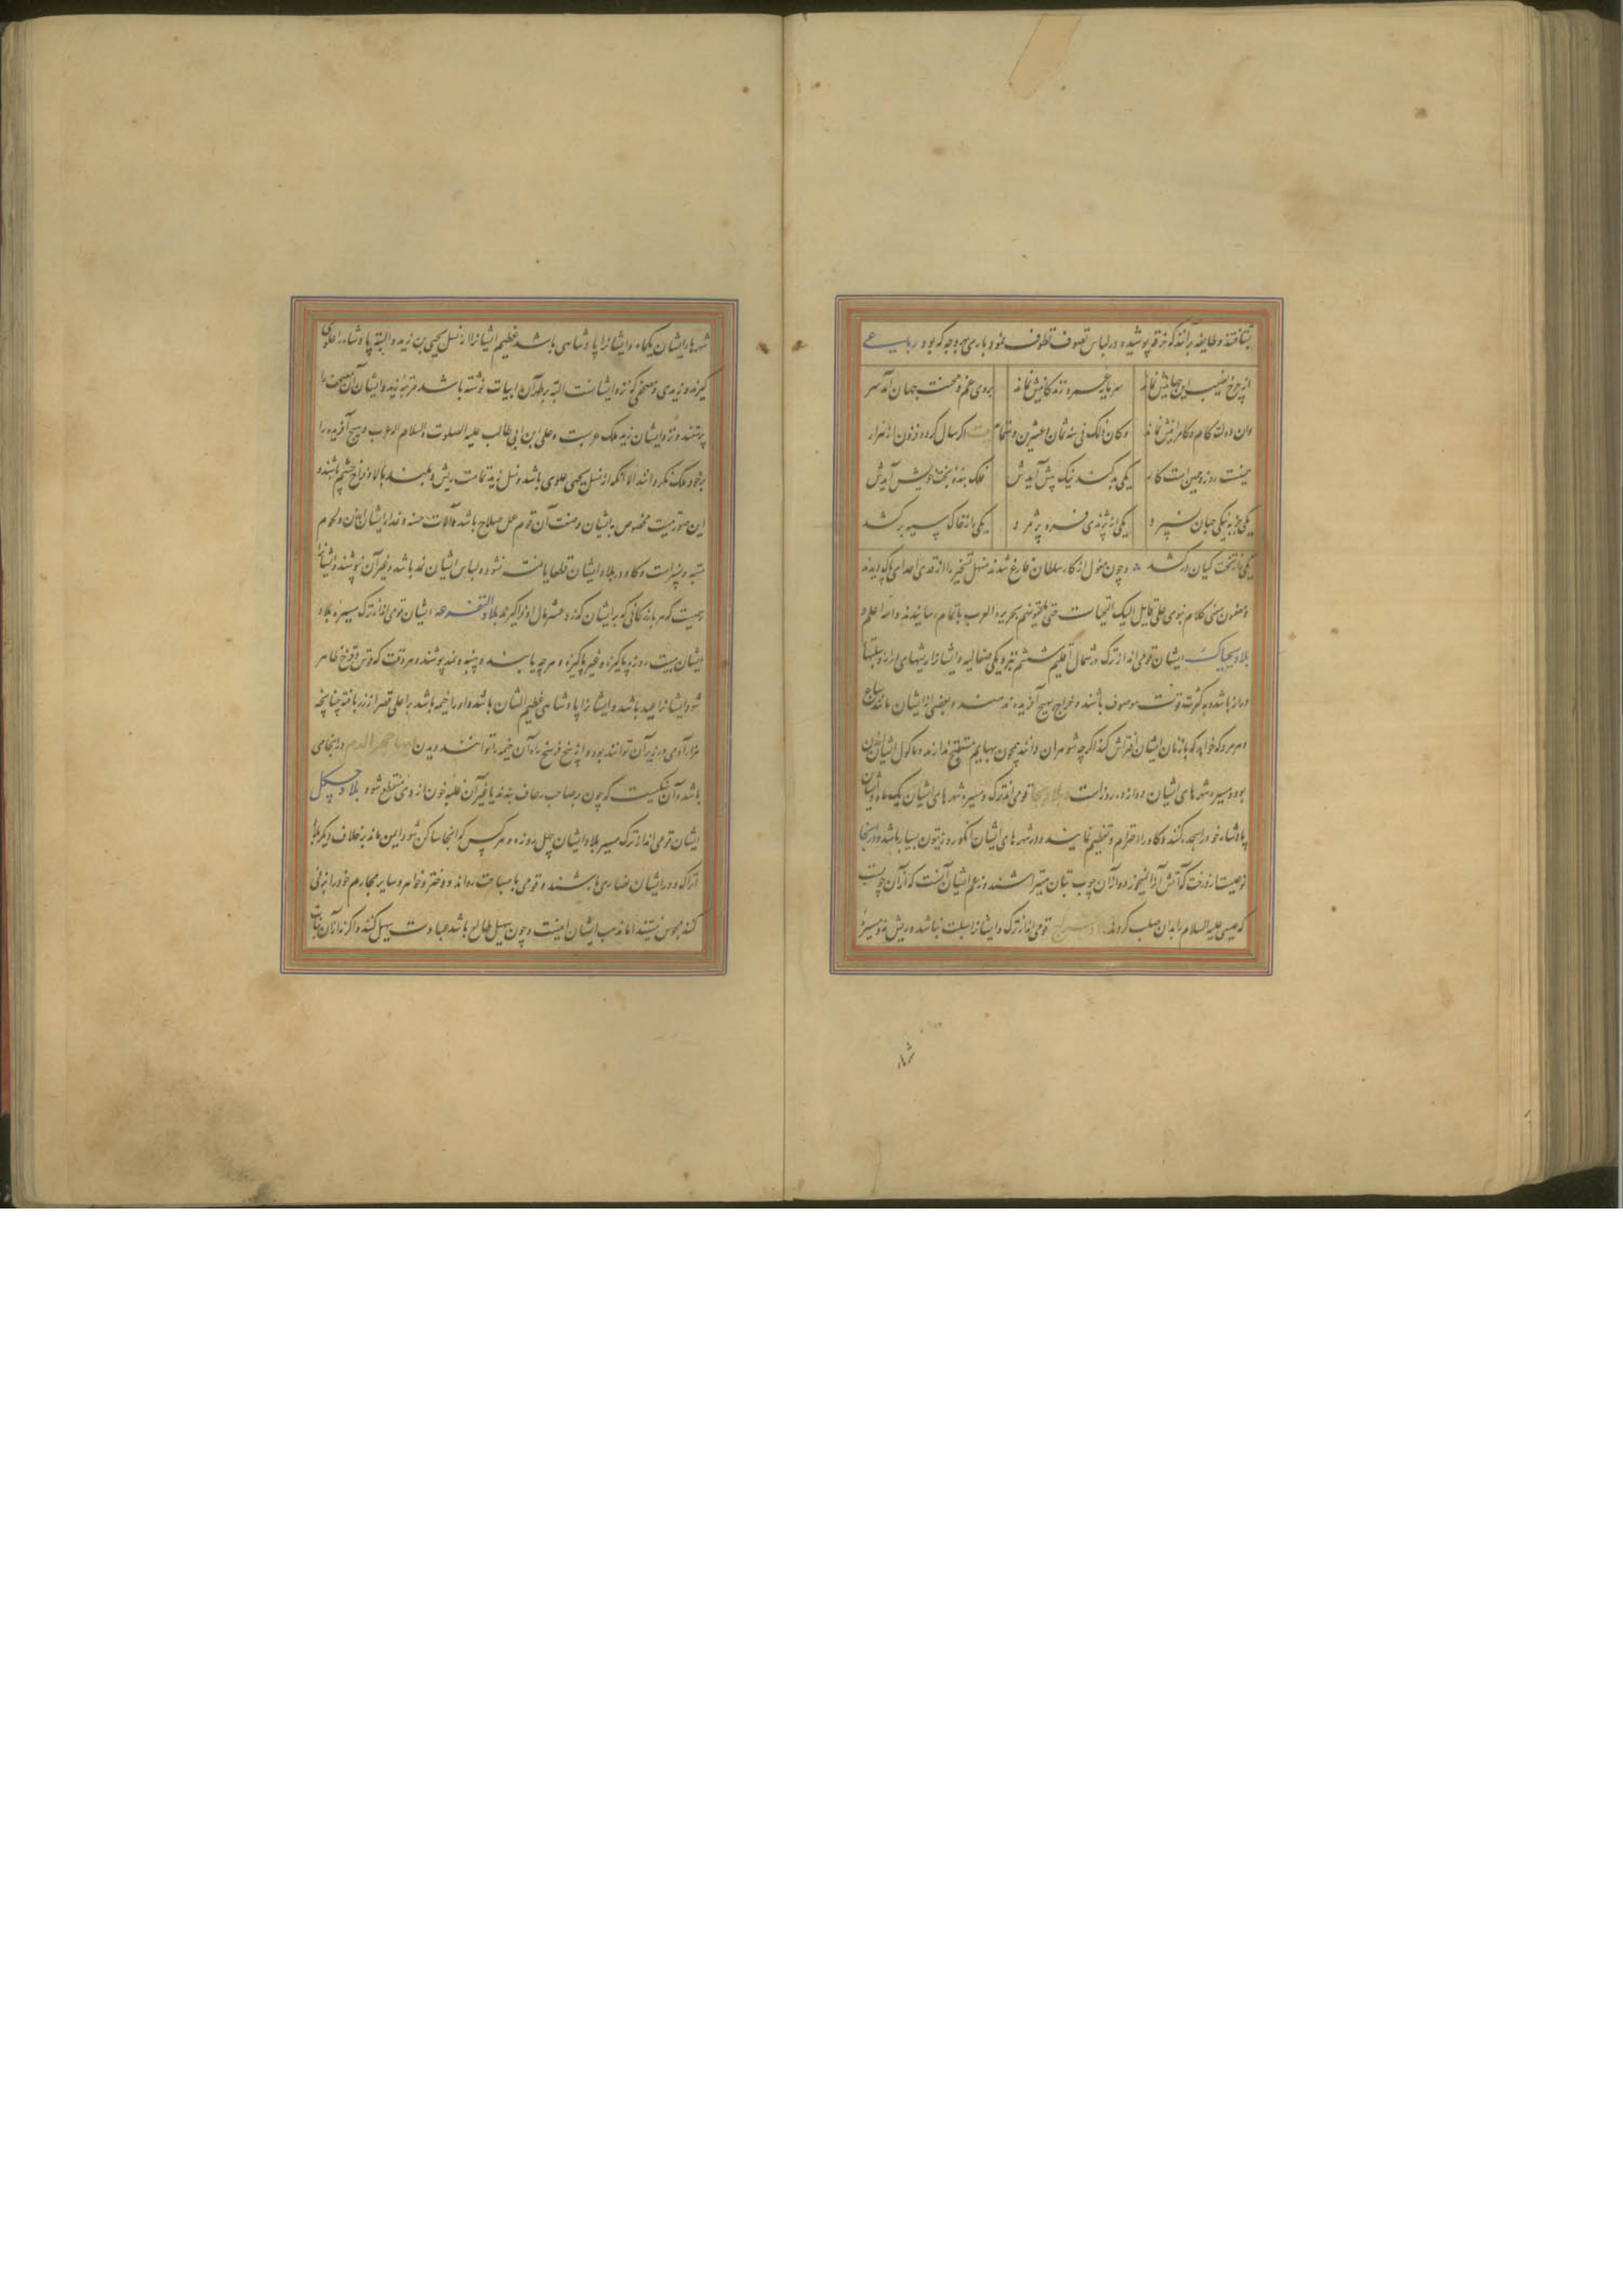 بشتافتند و طایفه برآنند که خرقه پوشیده در لباس تصوف تطوف نمود باری بهر وجه که بود رباعی
از چرخ نصیب این جهانیش نماند
سرمایه عمر و زندگانیش نماند
بروی غم و محنت جهان آمد سر
وان دولت کام و کامرانیش نماند
و کان ذلک فی سنه ثمان و عشرین و ستمائه
اگر سال گردد فزون از هزار
همینست روز و همین است کار
یکی بد کند نیک پیش آیدش
فلک بنده بخت خویش آیدش
یکی جز به نیکی جهان نسپرد
یکی از نژندی فسرده پژمرد
یکی را ز خاک سیه برکشد
یکی را ز تخت کیان درکشد و چون مغول از کار سلطان فارغ شدند منهل تسخیر را از قذی اعدای پاک دیدند
و مضمون کلام نبوی علی قایل الیک التحیات حتی یلحقونهم بجزیره العرب باتمام رسانیدند والله اعلم
بلاد بجناک ایشان قومی‌اند از ترک در شمال اقلیم ششم نزدیکی صقالبه و ایشانرا ریشهای دراز و سبلتها
دراز باشد و به کثرت قوت موصوف باشند و خراج بهیچ آفریده ندهند و بعضی از ایشان مانند سباع
و هر مرد که خواهد که با زنان ایشان افتراش کند اگر چه شوهران دانند همچون بهایم مستقبح ندارند و ماکول ایشان ارزن
بود و مسیره شهرهای ایشان دوازده روز است بلاد بجا قومی اند ترک و مسیره شهرهای ایشان یک ماه و ایشان
پادشاه خود را سجده کنند و گاو را احترام و تعظیم نمایند و در شهرهای ایشان انگور و زیتون بسیار باشد و در آنجا
نوعیست از درخت که آتش آنرا نسوزد و از آن چوب بتان میتراشند و زعم ایشان آنست که از آن چوبست
که عیسی علیه السلام را بدان صلب کردند قومی اند از ترک و ایشانرا سبلت نباشد و ریش نه و مسیره
شهر
شهرها ایشان یکماه و ایشانرا پادشاهی باشد عظیم ایشانرا از نسل یحیی بن زید و البته پادشاه را علوی
گیرند و زیدی و مصحفی که نزد ایشانست البته بر ظهر آن ابیات نوشته باشد مرثیه زید و ایشان آن مصحف را
پرستند و نزد ایشان زید ملک عربست و علی ابن ابی طالب علیه الصلوت و السلام اله عرب و هیچ آفریده را
برخود ملک نگردانند الا آنکه از نسل یحیی علوی باشد و نسل زید تمامت ریش و بلند بالا و فراخ چشم باشند و
این صورتیست مخصوص به ایشان و صنعت آن قوم عمل سلاح باشد و آلات حسنه و غذا ایشان ارزن و لحوم
میته و شیرات و گاو در بلاد ایشان قطعا یافت نشود و لباس ایشان نمد باشد و غیر آن نپوشند و ایشانرا
رسمیست که هر بازرگانی که بر ایشان گذرد عشر مال او فراگیرند بلاد التغزغز ایشان قومی اند از ترک مسیره بلاد
ایشان بیست روزه پاکیزه و غیر پاکیزه و هر چه یابند و پنبه و نمد پوشند و هر وقت که قوس و قزح ظاهر
شود ایشانرا عید باشد و ایشانرا پادشاهی عظیم الشان باشد و او را خیمه باشد بر اعلی قصر از زر بافته چنانچه
هزار آدمی در زیر آن توانند بود و از پنج فرسخ راه آن خیمه را توانند دیدن و بها حجر الدم در انجا می
باشد و آن سنگیست که چون بر صاحب رعاف بندند یا غیر آن غلبه خون از وی منقطع شود بلاد چگل
ایشان قومی اند از ترک مسیر بلاد ایشان چهل روزه و هر کس که انجا ساکن شود ایمن ماند بر خلاف دیگر بلاد
اتراک و در ایشان نصاری باشند و قومی با صباحت رواند و دختر و خواهر و سایر محارم خود را بزنی
کنند مجوس نیستند اما مذهب ایشان اینست و چون سهیل طالع باشد عبادت سهیل کنند